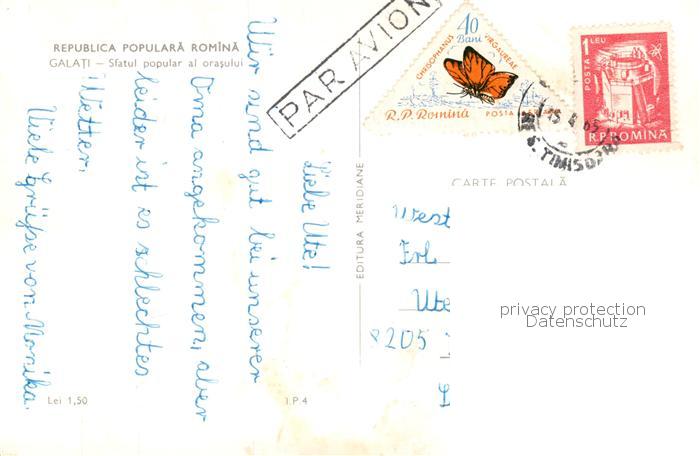 REPUBLICA POPULARĂ ROMÎNĂ
GALAȚI — Sfatul popular al orașului
PAR AVION
40
Bani
CHRSOPHANUS VIRGAUREAE
R.P. Romina POSTA
POSTA 1 LEU
R.P.ROMINA
TIMISOARA
CARTE POSTALĂ
EDITURA MERIDIANE
Liebe Ute!
Wir sind gut bei unserer
Oma angekommen, aber
leider ist es schlechtes
Wetter.
Viele Grüße von Monika.
West
Frl
Ute
8205
privacy protection
Datenschutz
Lei 1,50
I.P.4